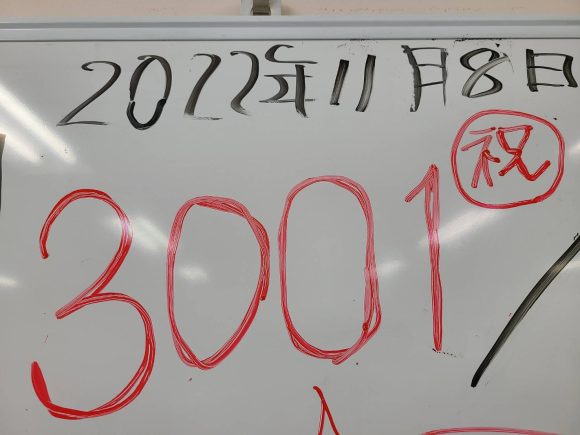 2022年11月8日
祝
3001